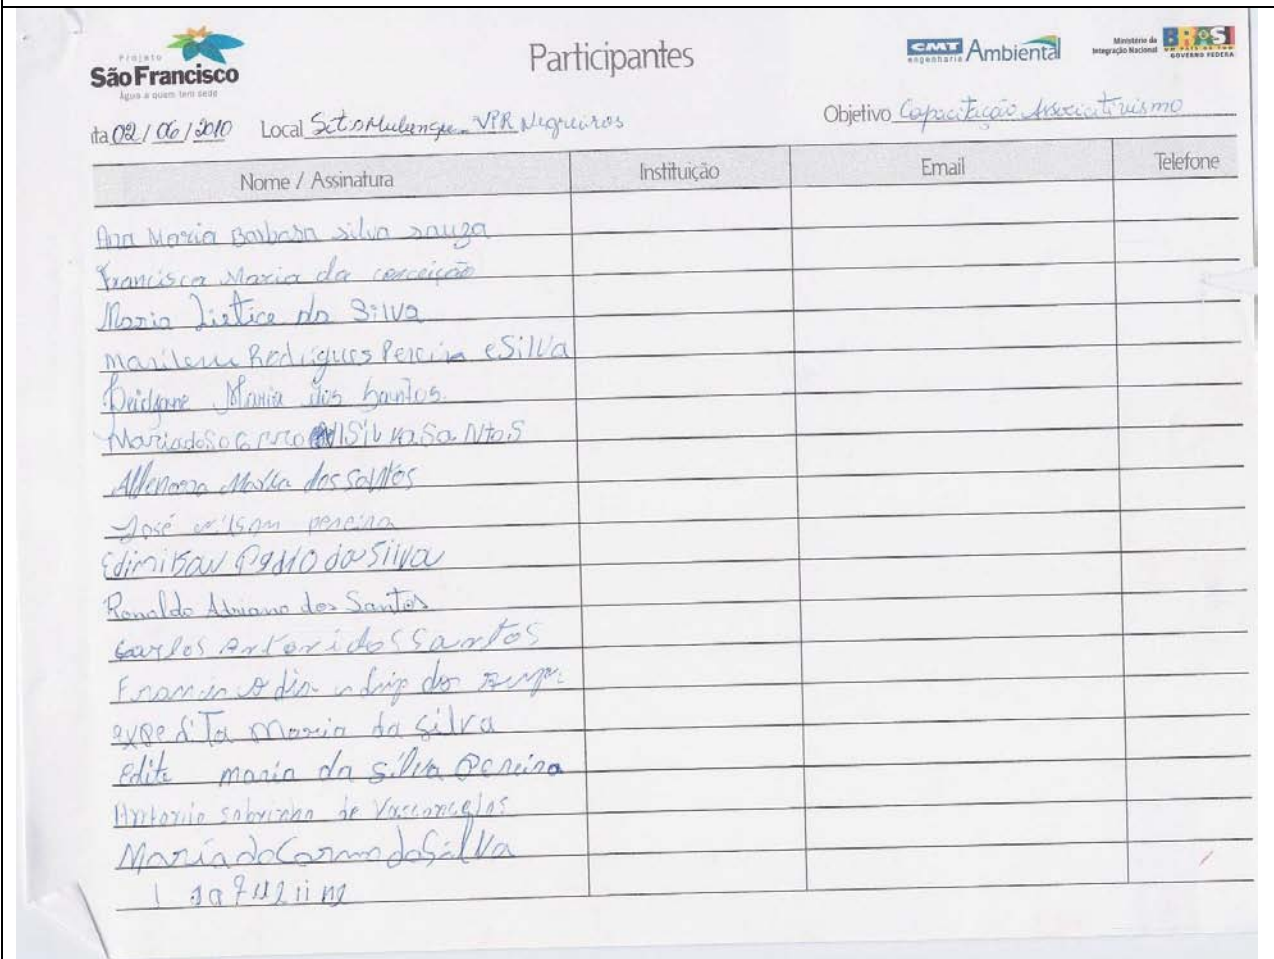 Projeto
São Francisco
Água a quem tem sede
Participantes
CMT engenharia Ambiental
Ministério da Integração Nacional
BRASIL
UM PAÍS DE TODOS
GOVERNO FEDERA
ita 02/06/2010 Local VPR Negreiros
Objetivo Capacitação Associativismo
Nome / Assinatura Instituição Email Telefone
Ana Maria Barbosa silva souza
Francisca Maria da conceição
Maria da Silva
Marilene Rodrigues Pereira e Silva
Maria dos Santos
Maria do Socorro Silva Santos
Aldenora Maria dos Santos
José wilson pereira
da Silva
Ronaldo Adriano dos Santos
Carlos Antoni dos Santos
expedita Maria da Silva
Edite maria da Silva Pereira
Antonio sobrinho de Vasconcelos
Maria do Carmo da Silva